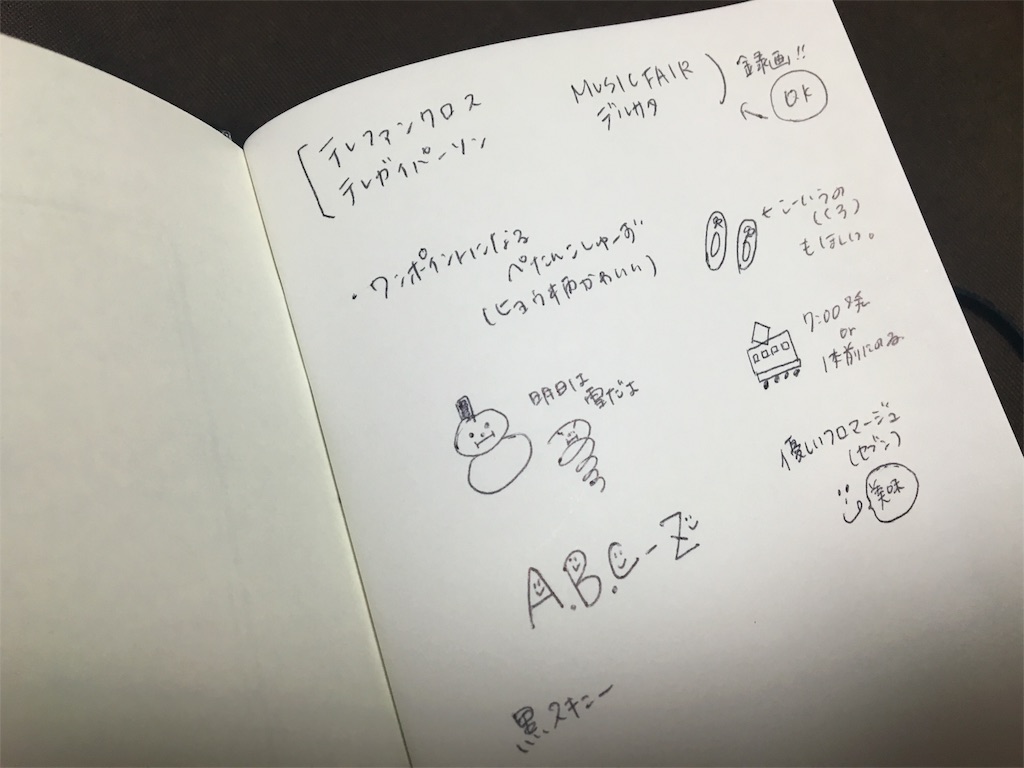 テレファンクロス
テレガイパーソン
MUSIC FAIR
デルサタ
録画!!
OK
・ワンポイントになる
ぺたんこしゅーず
(ヒョウ柄かわいい)
←こーいうの
(くろ)
もほしい。
7:00発
or
1本前にのる
明日は
雪だよ
優しいフロマージュ
(セブン)
美味
A.B.C-Z
黒スキニー